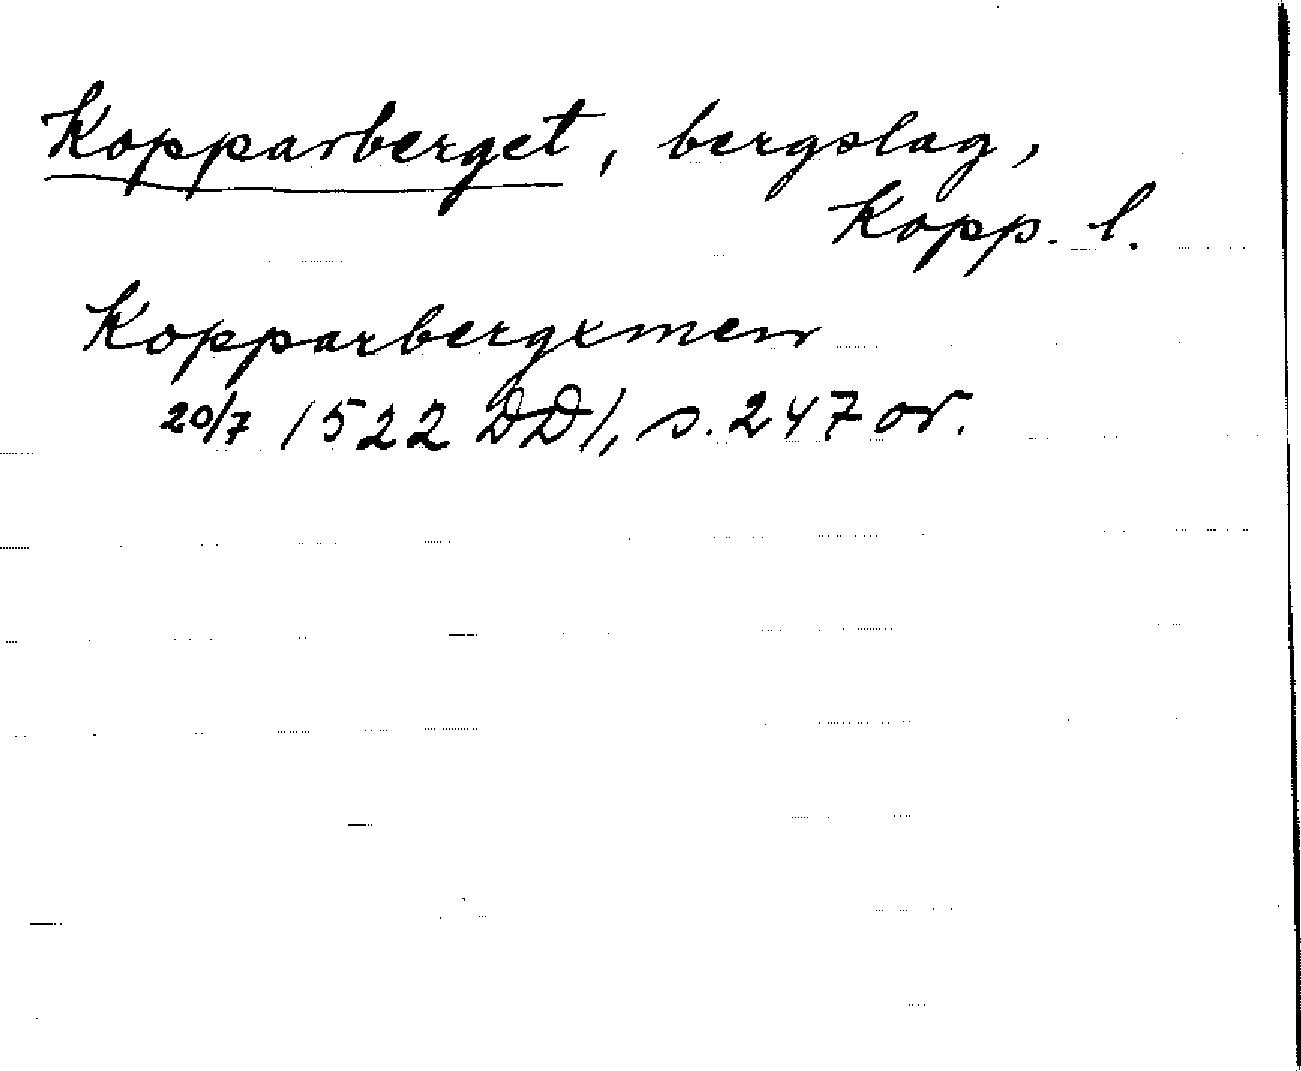 Kopparberget, bergslag,
Kopp. l.
Kopparbergxmen
20/7 1522 DD1, s. 247 or.